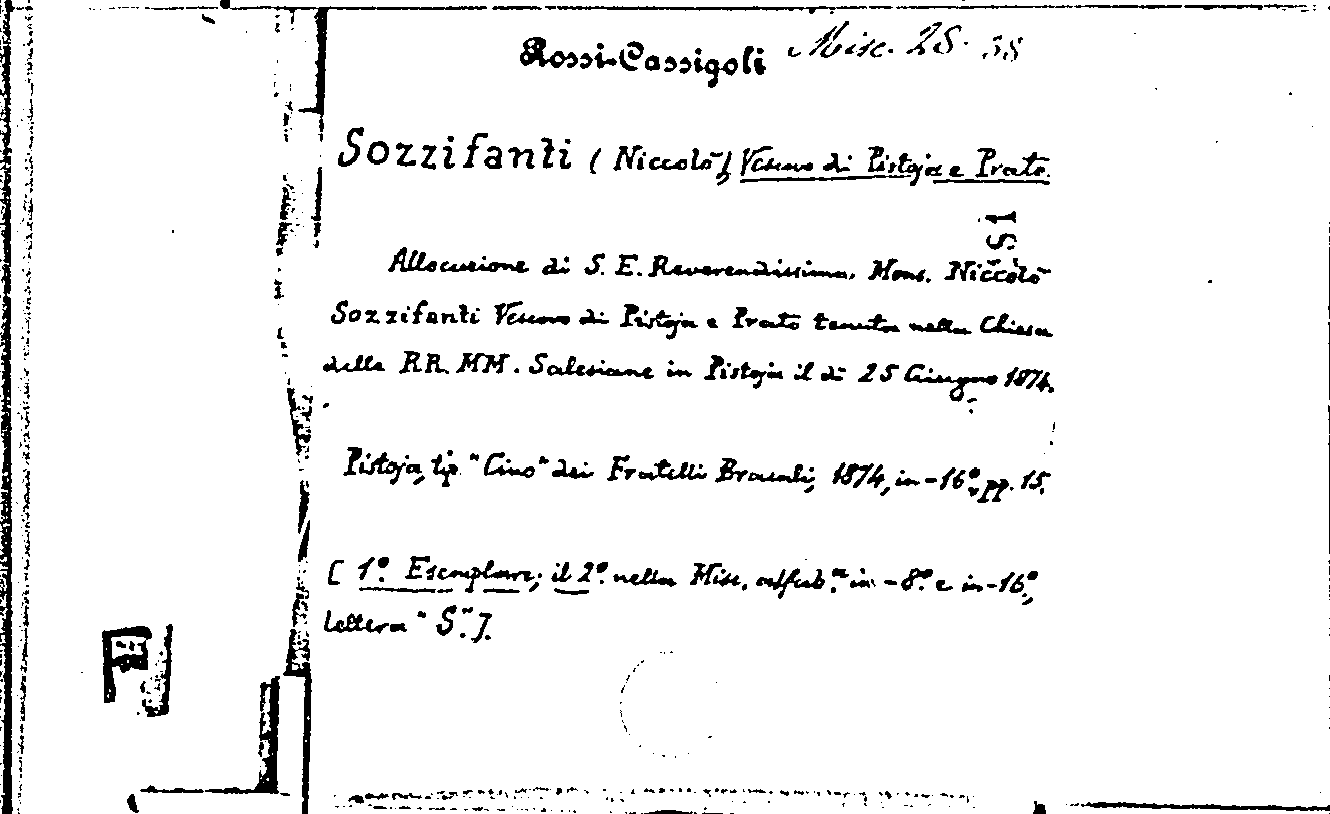 Rossi-Cassigoli Misc. 28. 38
Sozzifanti (Niccolò) Vescovo di Pistoja e Prato.
15
Allocuzione di S. E. Reverendissima, Mons. Niccolò
Sozzifanti Vescovo di Pistoja e Prato tenuta nella Chiesa
delle RR. MM. Salesiane in Pistoja il dì 25 Giugno 1874.
Pistoja, tip. "Cino" dei Fratelli Bracali, 1874, in-16º, pp. 15.
[ 1º. Esemplare; il 2º. nella Misc. alfab.ª in-8º. e in-16º,
lettera "S." ].